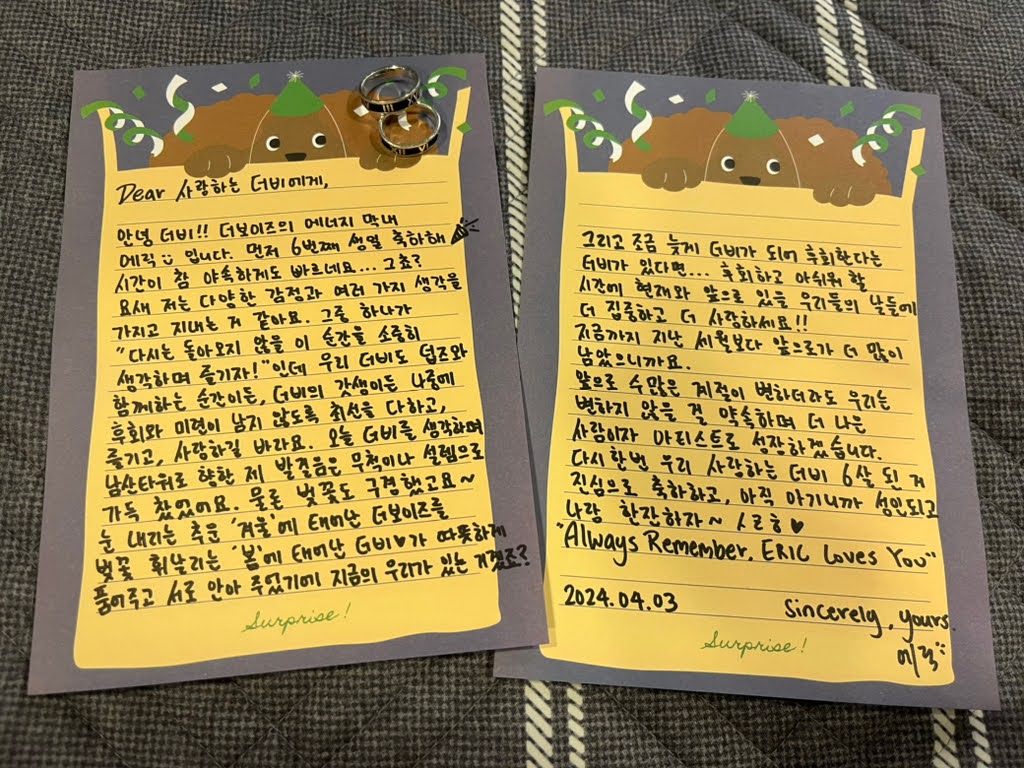 Dear 사랑하는 더비에게,
안녕 더비!! 더보이즈의 에너지 막내
에릭 입니다. 먼저 6번째 생일 축하해
시간이 참 야속하게도 빠르네요... 그쵸?
요새 저는 다양한 감정과 여러 가지 생각을
가지고 지내는 거 같아요. 그중 하나가
"다시는 돌아오지 않을 이 순간을 소중히
생각하며 즐기자!" 인데 우리 더비도 덥즈와
함께하는 순간이든, 더비의 갓생이든 나중에
후회와 미련이 남지 않도록 최선을 다하고,
즐기고, 사랑하길 바라요. 오늘 더비를 생각하며
남산타워로 향한 제 발걸음은 무척이나 설렘으로
가득 찼었어요. 물론 벚꽃도 구경했고요~
눈 내리는 추운 '겨울'에 태어난 더보이즈를
벚꽃 휘날리는 '봄'에 태어난 더비♥가 따뜻하게
품어주고 서로 안아 주었기에 지금의 우리가 있는 거겠죠?
Surprise!
그리고 조금 늦게 더비가 되어 후회한다는
더비가 있다면... 후회하고 아쉬워 할
시간에 현재와 앞으로 있을 우리들의 날들에
더 집중하고 더 사랑하세요!!
지금까지 지난 세월보다 앞으로가 더 많이
남았으니까요.
앞으로 수많은 계절이 변하더라도 우리는
변하지 않을 걸 약속하며 더 나은
사람이자 아티스트로 성장하겠습니다.
다시 한번 우리 사랑하는 더비 6살 된 거
진심으로 축하하고, 아직 아기니까 성인되고
나랑 한잔하자~ ㅅㄹㅎ♥
"Always Remember, ERIC Loves You"
2024.04.03
Sincerely, yours.
에릭
Surprise!